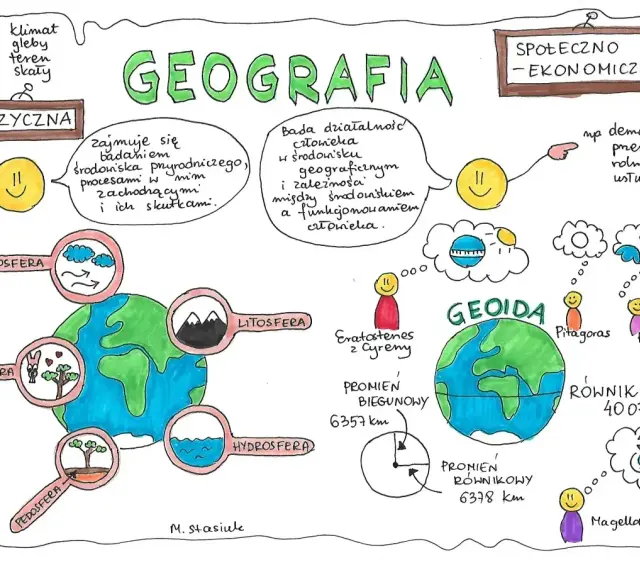 klimat
gleby
teren
skały
GEOGRAFIA
SPOŁECZNO
-EKONOMICZ
ZYCZNA
zajmuje się
badaniem
środowiska przyrodniczego,
procesami w nim
zachodzącymi
i ich skutkami.
Bada działalność
człowieka
w środowisku
geograficznym
i zależności
między środowiskiem
a funkcjonowaniem
człowieka.
np
OSFERA
LITOSFERA
RA
HYDROSFERA
PEDOSFERA
Eratostenes
z Cyreny
GEOIDA
Pitagoras
PROMIEŃ
BIEGUNOWY
6357 km
RÓWNIK
400
PROMIEŃ
RÓWNIKOWY
6378 km
Magella
M. Stasiuk